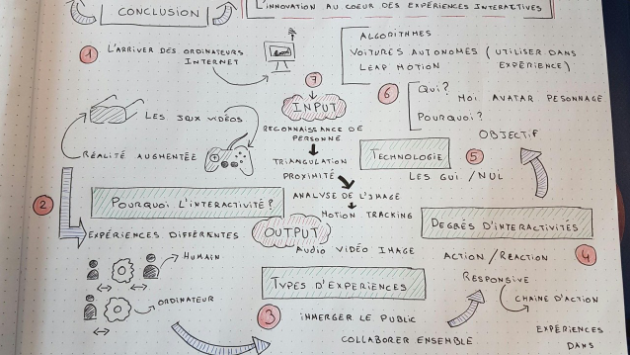 CONCLUSION
L'INNOVATION AU COEUR DES EXPÉRIENCES INTERACTIVES
1
L'ARRIVER DES ORDINATEURS
INTERNET
ALGORITHMES
VOITURES AUTONOMES (UTILISER DANS
LEAP MOTION EXPÉRIENCE)
7
INPUT
RECONNAISSANCE DE
PERSONNE
TRIANGULATION
PROXIMITÉ
ANALYSE DE L'IMAGE
MOTION TRACKING
OUTPUT
AUDIO VIDÉO IMAGE
6
QUI?
MOI AVATAR PESONNAGE
POURQUOI?
OBJECTIF
TECHNOLOGIE
5
LES GUI / NUI
LES JEUX VIDÉOS
RÉALITÉ AUGMENTÉE
2
POURQUOI L'INTERACTIVITÉ?
EXPÉRIENCES DIFFÉRENTES
HUMAIN
ORDINATEUR
TYPES D'EXPERIENCES
3
IMMERGER LE PUBLIC
COLLABORER ENSEMBLE
DEGRÉS D'INTERACTIVITÉS
4
ACTION / RÉACTION
RESPONSIVE
CHAINE D'ACTION
EXPÉRIENCES
DANS